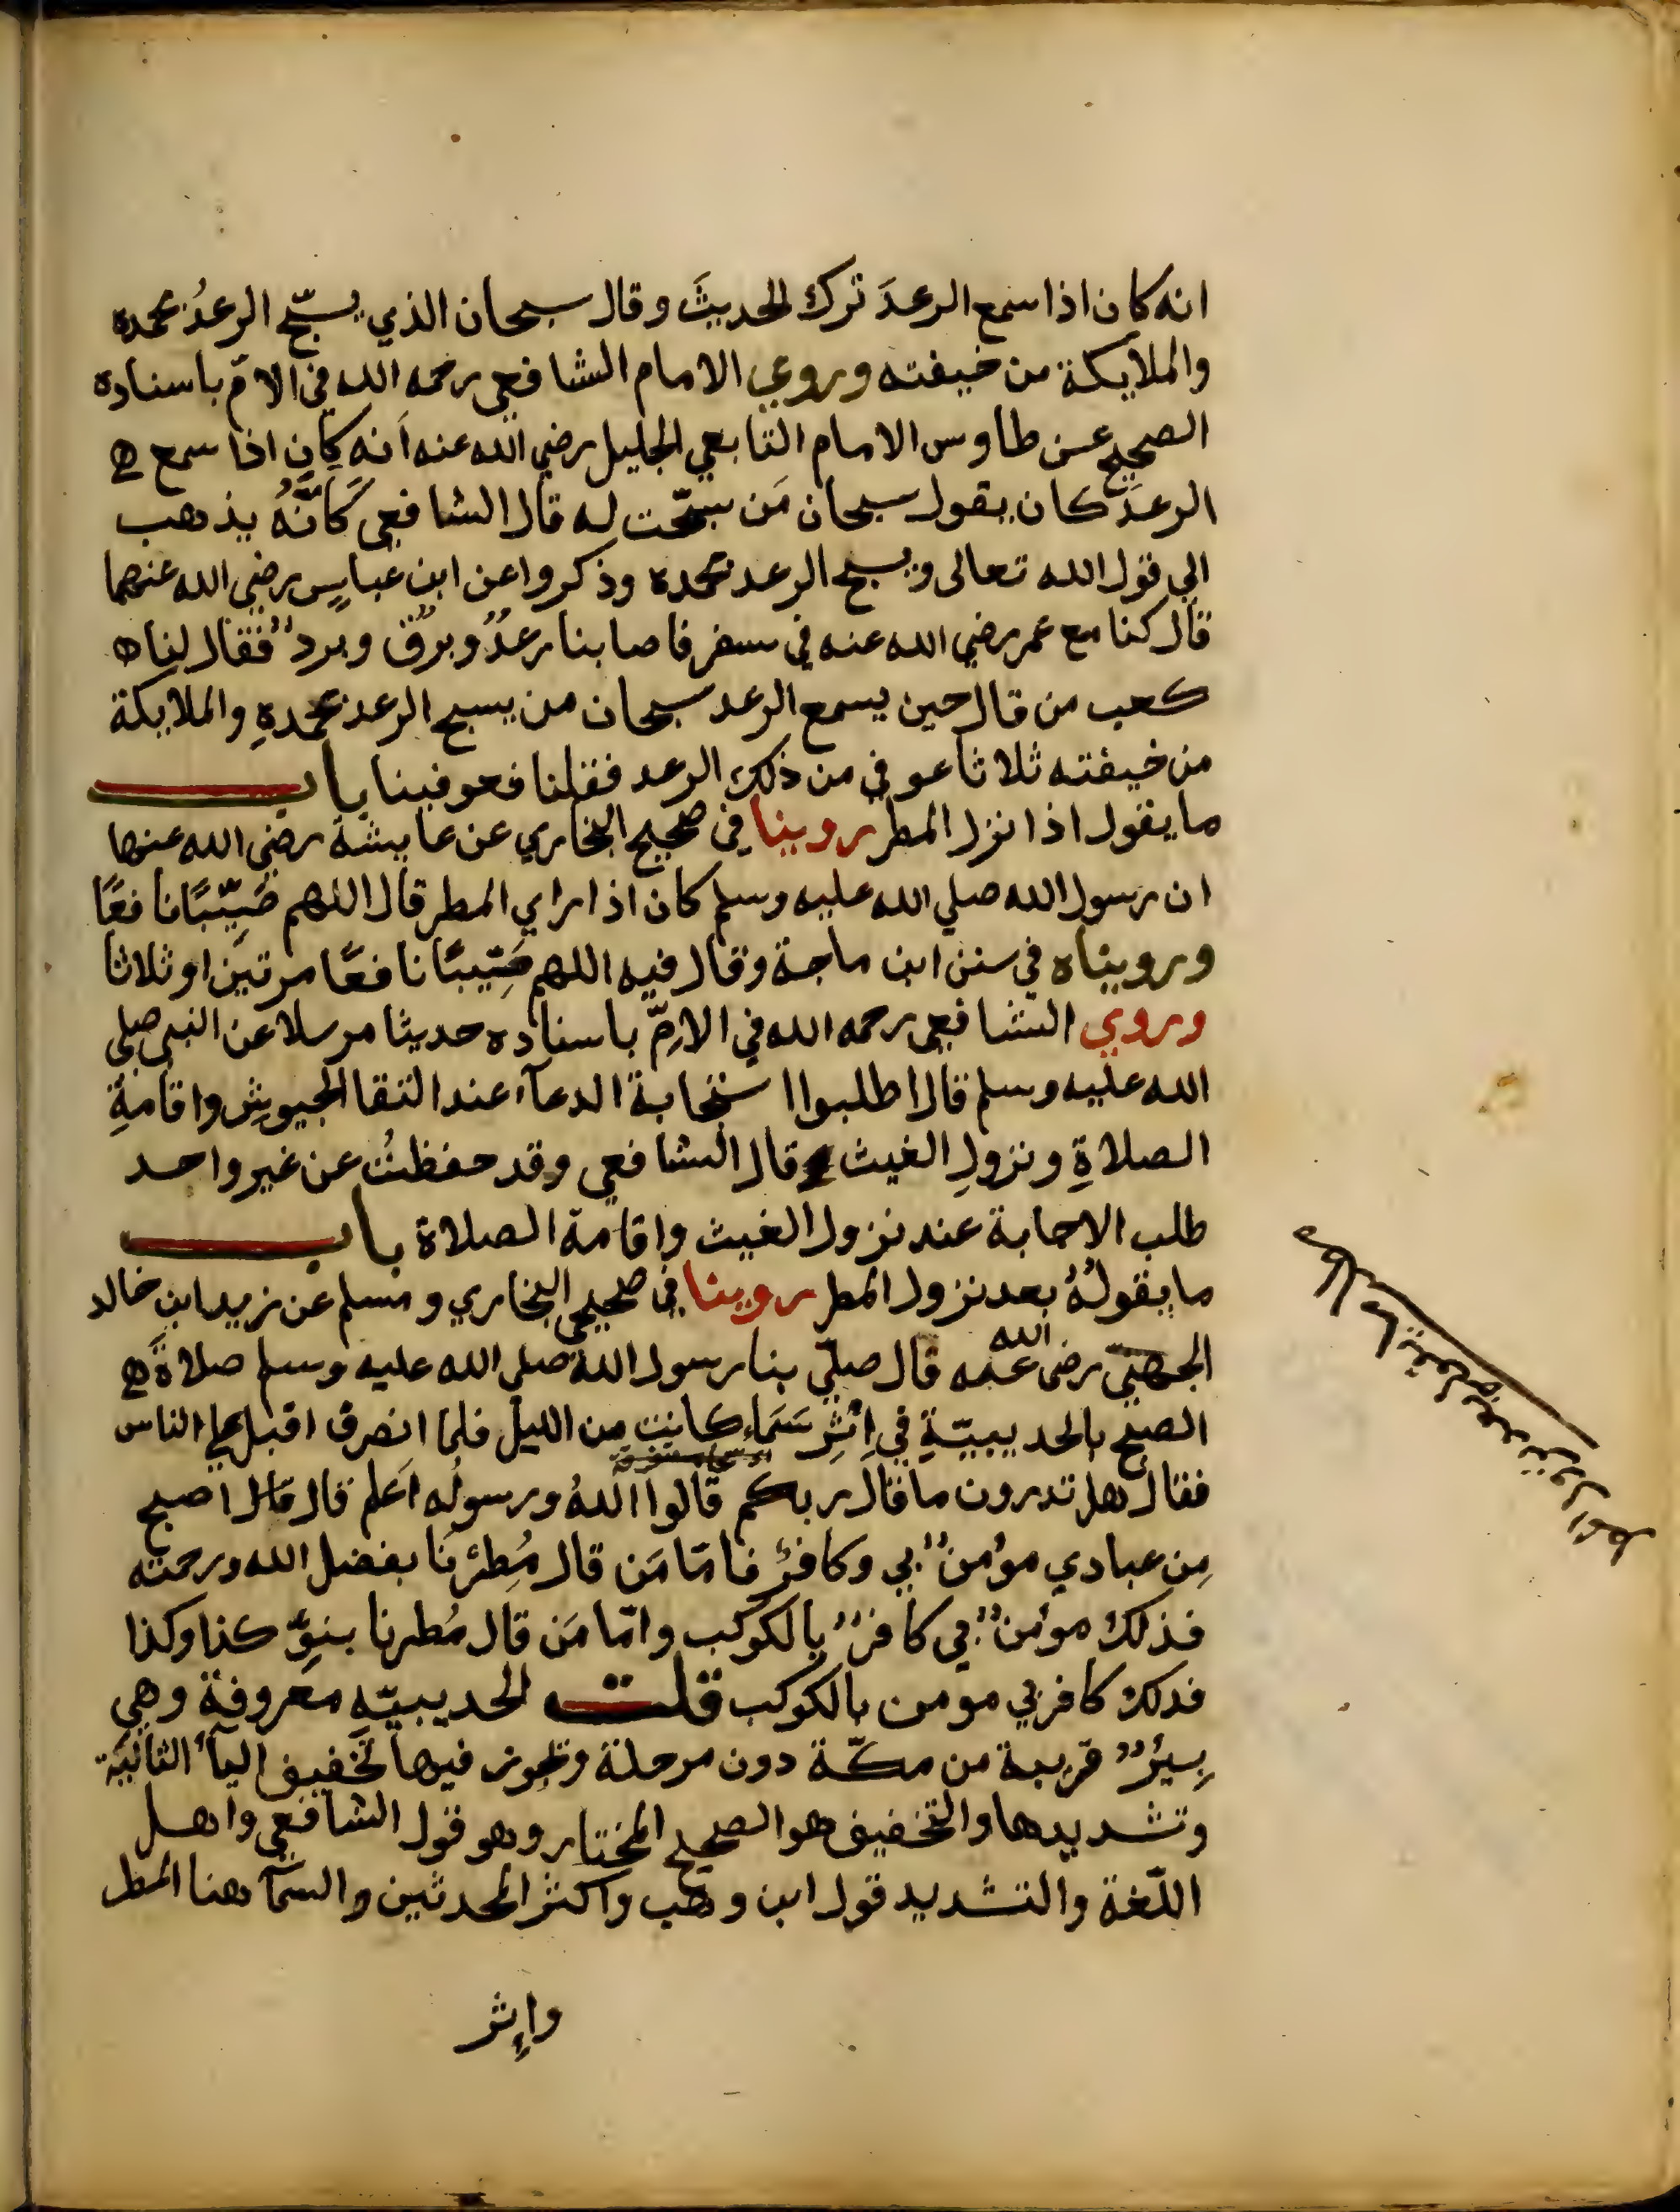 انه كان اذا سمع الرعدَ ترك الحديثَ وقال سبحان الذي يسبّح الرعدُ بحمده
والملايكة من خيفته وروي الامام الشافعي رحمه الله في الامّ باسناده
الصحيح عن طاوس الامام التابعي الجليل رضي الله عنه أنه كان اذا سمع
الرعدَ كان يقول سبحان مَن سبّحت له قال الشافعي كأنَّهُ يذهب
الي قول الله تعالى ويسبح الرعد بحمده وذكروا عن ابن عباسٍ رضي الله عنهما
قال كنا مع عمر رضي الله عنه في سفر فاصابنا رعدٌ وبرقٌ وبردٌ فقال لنا
كعب من قال حين يسمع الرعد سبحان من يسبح الرعد بحمدهِ والملايكة
من خيفته ثلاثا عوفي من ذلك الرعد فقلنا فعوفينا باب
ما يقول اذا نزل المطر روينا في صحيح البخاري عن عايشة رضي الله عنها
ان رسول الله صلي الله عليه وسلم كان اذا راي المطر قال اللهم صَيِّبًا نافعًا
ورويناه في سنن ابن ماجة وقال فيه اللهم صَيِّبًا نافعًا مرتين او ثلاثا
وروي الشافعي رحمه الله في الامِّ باسناده حديثا مرسلا عن النبي صلي
الله عليه وسلم قال اطلبوا استجابة الدعآء عند التقا الجيوش واقامةِ
الصلاةِ ونزولِ الغيث وقال الشافعي وقد حفظتُ عن غير واحد
طلب الاجابة عند نزول الغيث واقامة الصلاة باب
ما يقولُهُ بعد نزول المطر روينا في صحيحي البخاري ومسلم عن زيد ابن خالد
الجهنيّ رضي الله عنه قال صلّي بنا رسول الله صلي الله عليه وسلم صلاةَ
الصبح بالحديبيّةِ في اِثْرِ سَمَاءٍ كانت من الليل فلما انصرف اقبل علي الناس
فقال هل تدرون ما قال ربكم قالوا اللهُ ورسولُه اَعلم قال قال اصبح
مِن عبادي مؤمنٌ بي وكافرٌ فامّا مَن قال مُطِرْنَا بفضل الله ورحمته
فذلك مؤمنٌ بي كافرٌ بالكوكب وامّا مَن قال مُطرنا بنوِّ كذا وكذا
فذلك كافر بي مومن بالكوكب قلت الحديبيّه معروفة وهي
بِيْرٌ قريبة من مكّة دون مرحلة وتجوز فيها تخفيف اليآء الثانيَة
وتشديدها والتخفيف هو الصحيح المختار وهو قول الشافعي واهل
اللّغة والتشديد قول ابن وهب واكثر المحدثين والسّمآ هنا المطر
واِثر